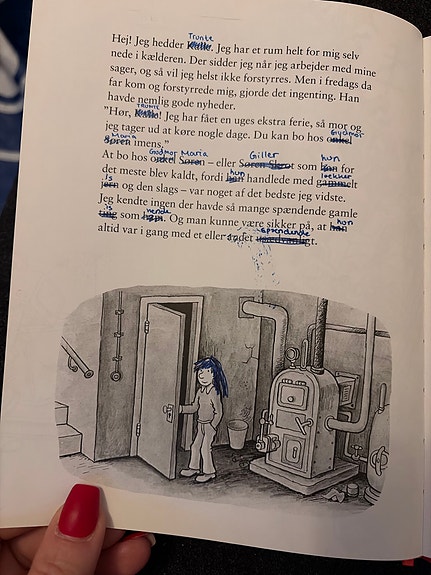 Trunte
Hej! Jeg hedder Kalle. Jeg har et rum helt for mig selv
nede i kælderen. Der sidder jeg når jeg arbejder med mine
sager, og så vil jeg helst ikke forstyrres. Men i fredags da
far kom og forstyrrede mig, gjorde det ingenting. Han
havde nemlig gode nyheder.
Trunte
"Hør, Kalle! Jeg har fået en uges ekstra ferie, så mor og
Gudmor
jeg tager ud at køre nogle dage. Du kan bo hos onkel
Maria
Søren imens."
Godmor Maria Giller hun
At bo hos onkel Søren – eller Søren Skrot som han for
hun lækker
det meste blev kaldt, fordi han handlede med gammelt
is
jern og den slags – var noget af det bedste jeg vidste.
Jeg kendte ingen der havde så mange spændende gamle
is hende hun
ting som ham. Og man kunne være sikker på, at han
spændende
altid var i gang med et eller andet